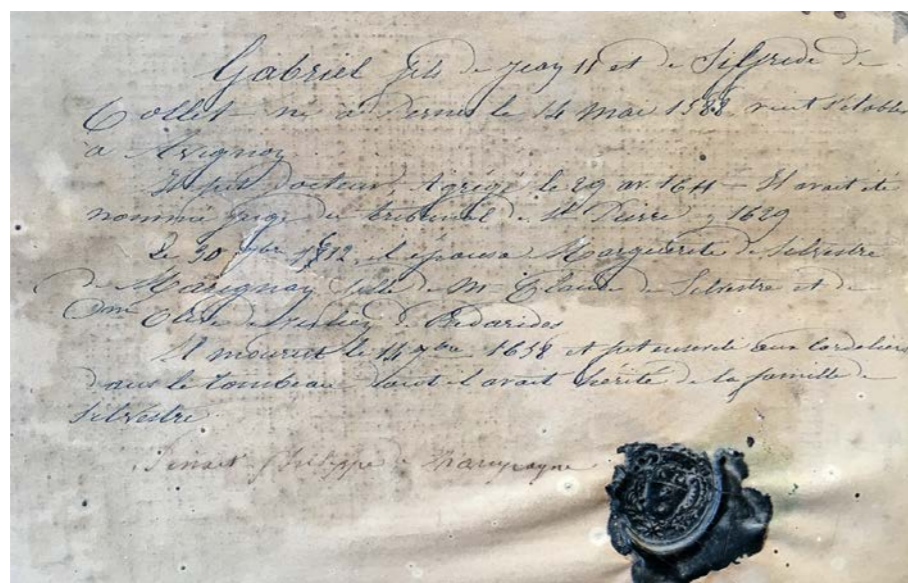 Gabriel fils de Jean II et de Silfride de
Collet né à Pernes le 14 mai 1588, vient s'établir
à Avignon
Il fut docteur, Agrégé le 29 av. 1611 – Il avait été
nommé juge du tribunal de St Pierre, 1629
Le 30 1612, il épousa Marguerite de Silvestre
de Marignan fille de Mr Claude de Silvestre et de
Dme Olive de Bédarides
Il mourut le 14 7bre 1658 et fut enseveli aux Cordeliers
dans le tombeau dont il avait hérité de la famille de
Silvestre
Philippe de Champagne